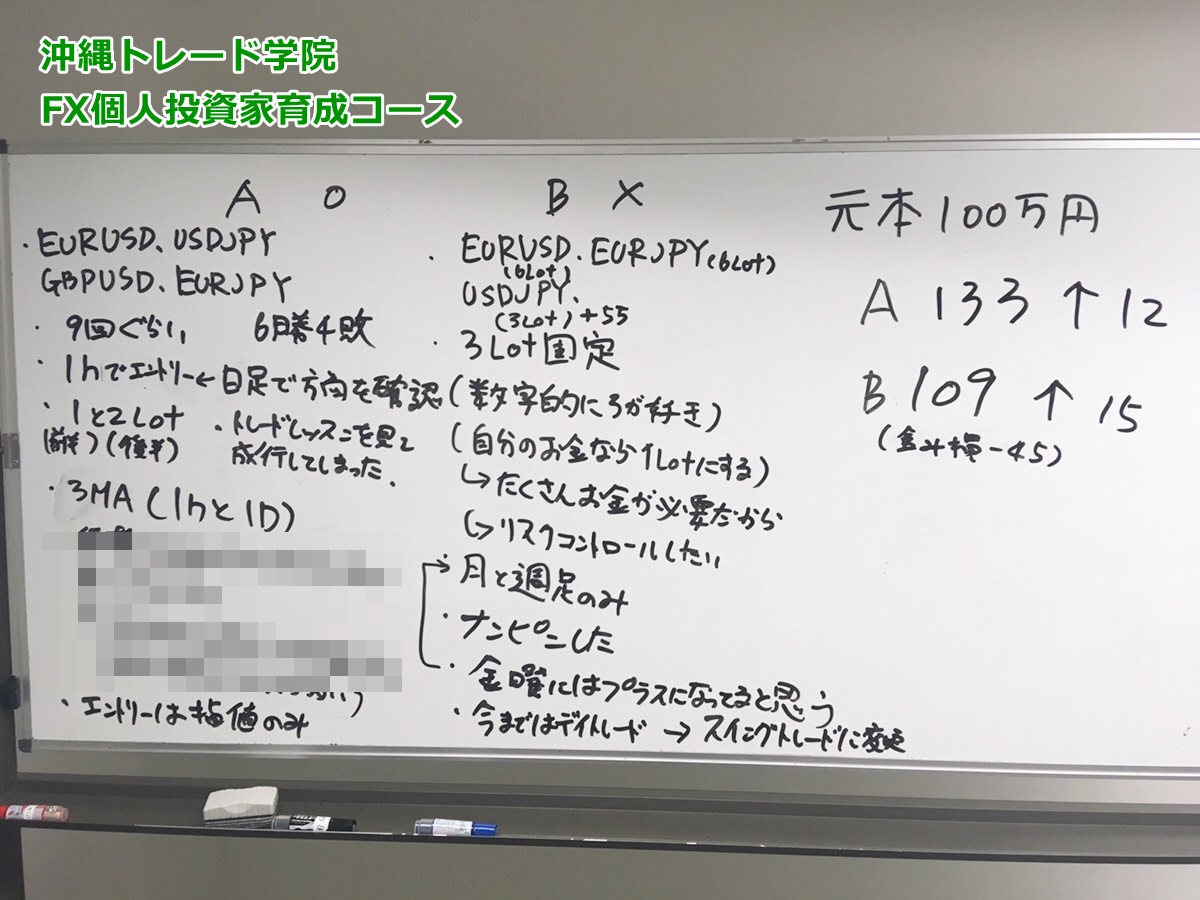 沖縄トレード学院
FX個人投資家育成コース
A O
・EURUSD、USDJPY
GBPUSD、EURJPY
・9回ぐらい 6勝4敗
・1hでエントリー←日足で方向を確認
・1と2Lot
(前半)(後半)
・トレードレッスンを見て
成行してしまった.
・3MA(1hと1D)
・エントリーは指値のみ
B X
・EURUSD.EURJPY(6Lot)
(6Lot)
USDJPY.
(3Lot)+55
・3Lot固定
(数字的に3が好き)
(自分のお金なら1Lotにする)
↳たくさんお金が必要だから
↳リスクコントロールしたい
・月と週足のみ
・ナンピンした
・金曜にはプラスになってると思う
・今まではデイトレード→スイングトレードに変更
元本100万円
A 133↑12
B 109↑15
(含み損-45)